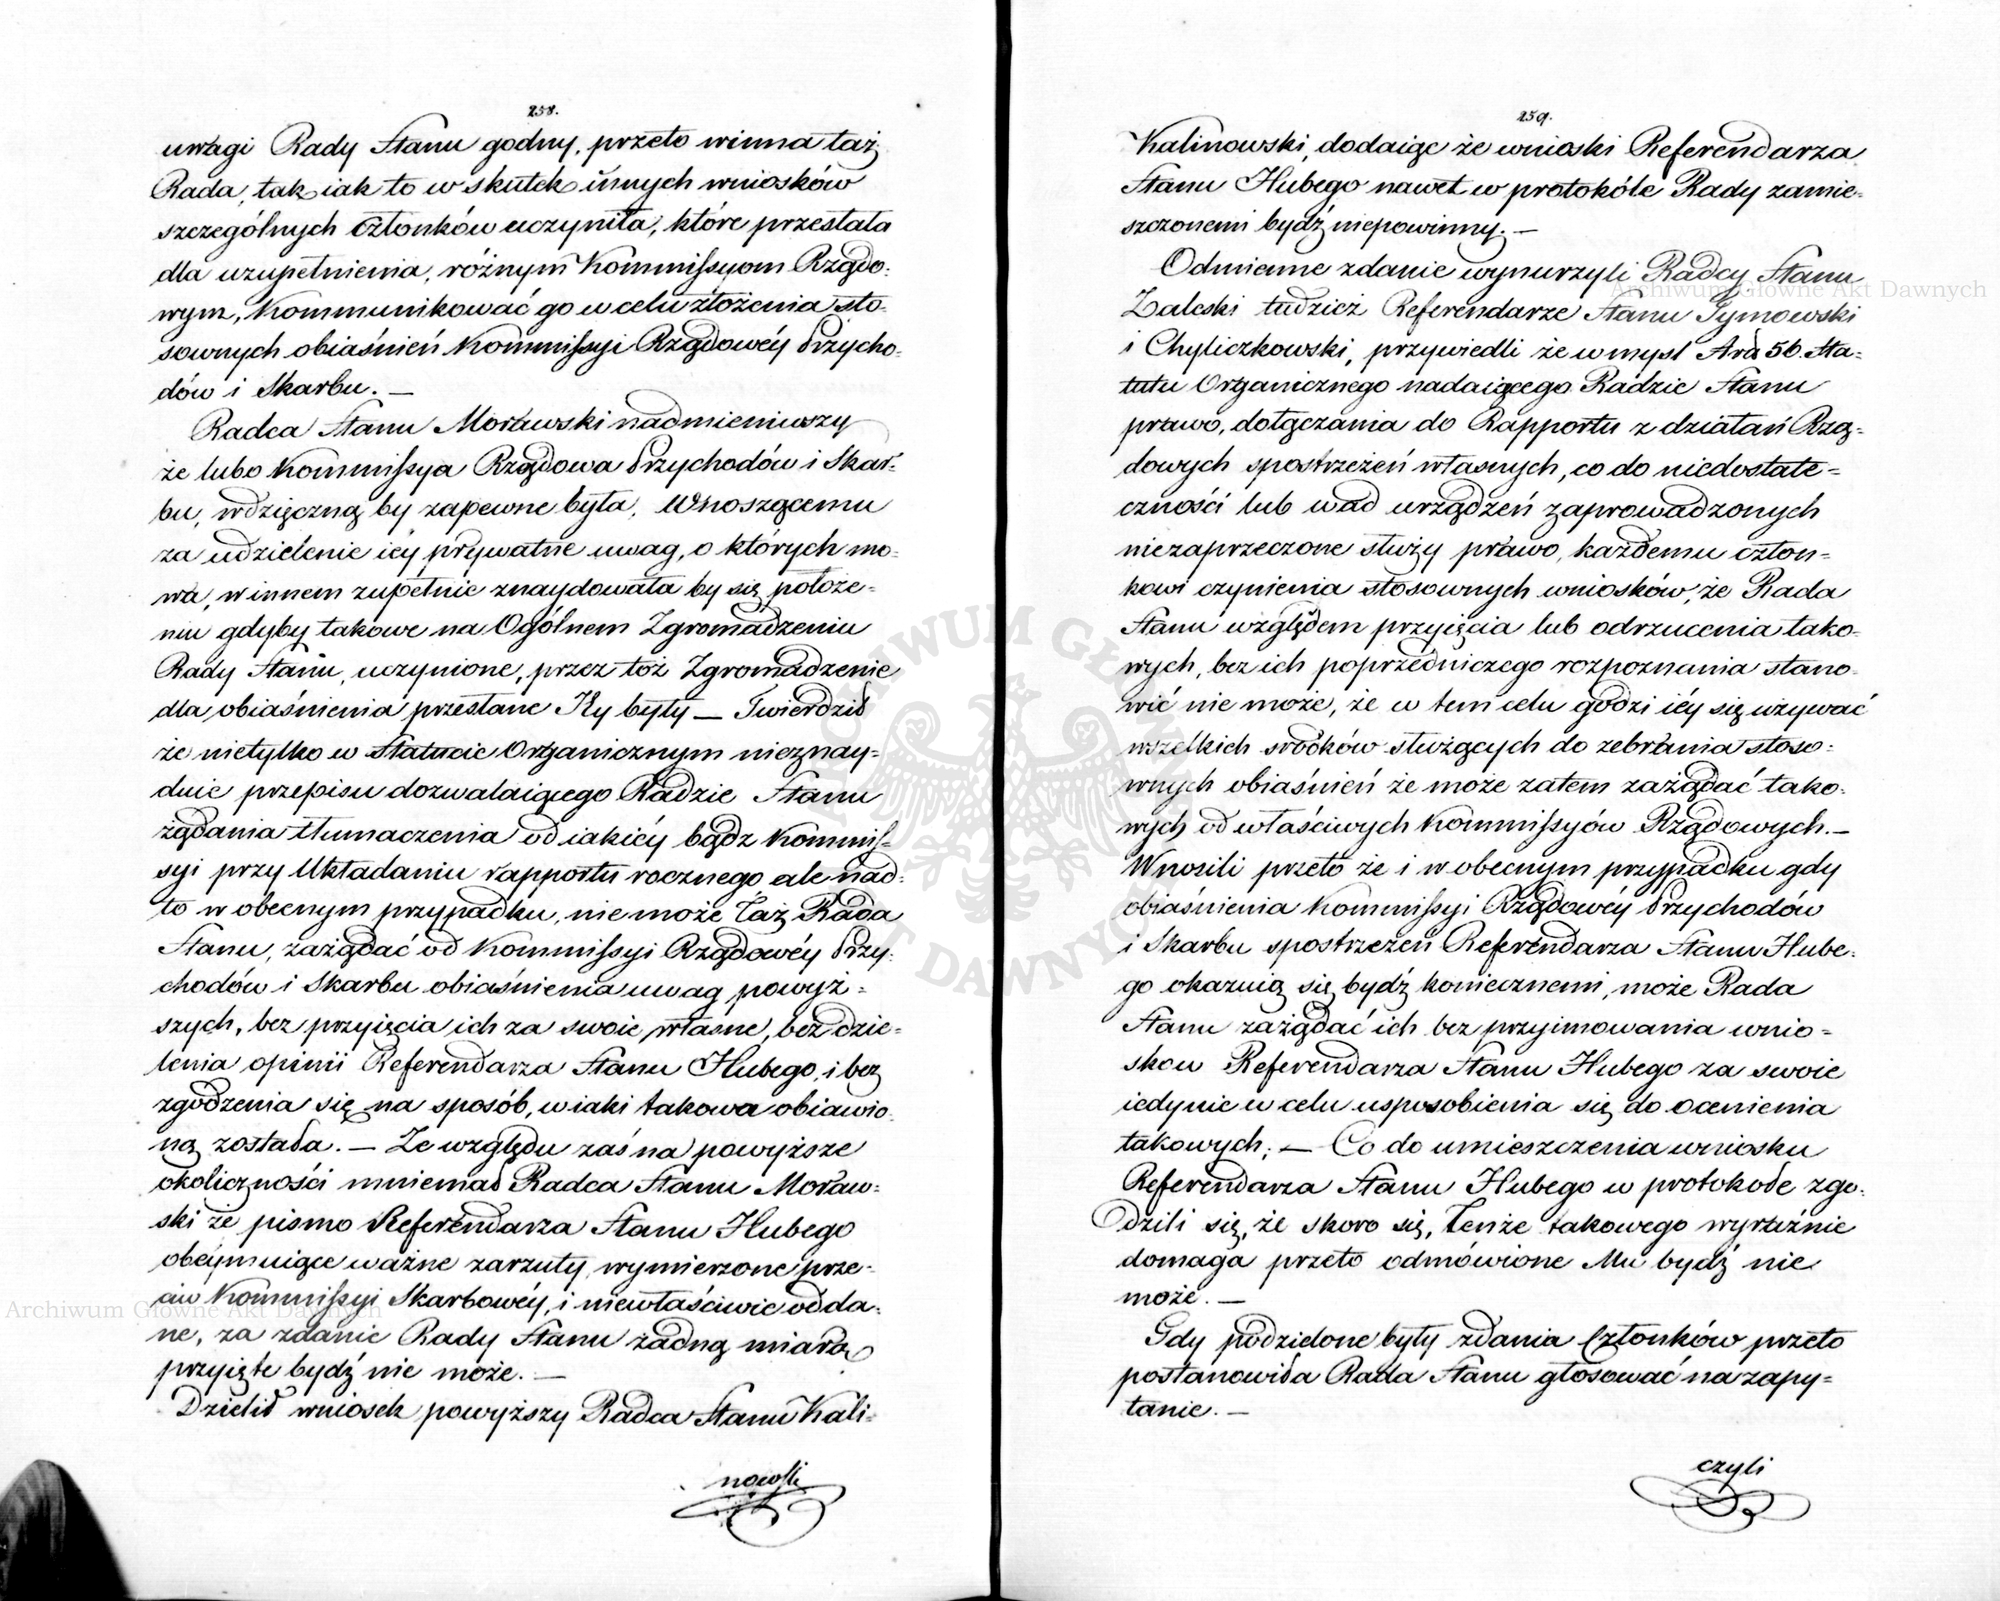 258.
uwagi Rady Stanu godny, przeto winna taż
Rada, tak iak to w skutek innych wniosków
szczególnych członków uczyniła, które przesłała
dla uzupełnienia, różnym Kommissyom Rządo-
wym, Kommunikować go w celu złożenia sto-
sownych obiaśnień Kommissyi Rządowéy Przycho-
dów i Skarbu. —
Radca Stanu Morawski nadmieniwszy
że lubo Kommissya Rządowa Przychodów i Skar-
bu, wdzięczną by zapewne była, Wnoszącemu
za udzielenie iey prywatne uwag, o których mo-
wa, w innem zupełnie znaydowała by się położe-
niu gdyby takowe na Ogólnem Zgromadzeniu
Rady Stanu, uczynione, przez toż Zgromadzenie
dla obiaśnienia przesłane Jéy były — Twierdził
że nietylko w Statucie Organicznym nieznay-
duie przepisu dozwalaiącego Radzie Stanu
żądania tłumaczenia od iakiéy bądz Kommis-
syi przy Układaniu rapportu rocznego ale nad-
to w obecnym przypadku, nie może Taż Rada
Stanu, zażądać od Kommissyi Rządowéy Przy-
chodów i Skarbu obiaśnienia uwag powyż-
szych, bez przyięcia ich za swoie własne, bez dzie-
lenia opinii Referendarza Stanu Hubego, i bez
zgodzenia się na sposób, w iaki takowa obiawio-
ną została. — Ze względu zaś na powyższe
okoliczności mniemał Radca Stanu Moraw-
ski że pismo Referendarza Stanu Hubego
obeymuiące ważne zarzuty wymierzone prze-
ciw Kommissyi Skarbowéy, i niewłaściwie odda-
ne, za zdanie Rady Stanu żadną miarą
przyięte bydź nie może. —
Dzielił wniosek powyższy Radca Stanu Kali-
nowski
259.
Kalinowski, dodaiąc że wnioski Referendarza
Stanu Hubego nawet w protokóle Rady zamie-
szczonemi bydź niepowinny. —
Odmienne zdanie wynurzyli Radcy Stanu
Zaleski tudzież Referendarze Stanu Tymowski
i Chyliczkowski, przywiedli że w mysl Ard 56. Sta-
tutu Organicznego nadaiącego Radzie Stanu
prawo, dołączania do Rapportu z działań Rzą-
dowych spostrzeżeń własnych, co do niedostate-
czności lub wad urządzeń zaprowadzonych
niezaprzeczone służy prawo, każdemu człon-
kowi czynienia stosownych wniosków, że Rada
Stanu względem przyięcia lub odrzucenia tako-
wych, bez ich poprzedniczego rozpoznania stano-
wić nie może, że w tem celu godzi iéy się używać
wszelkich srodków służących do zebrania stoso-
wnych obiaśnień że może zatem zażądać tako-
wych od właściwych Kommissyów Rządowych. —
Wnosili przeto że i w obecnym przypadku gdy
obiaśnienia Kommissyi Rządowéy Przychodów
i Skarbu spostrzeżeń Referendarza Stanu Hube-
go okazuią się bydź koniecznemi, może Rada
Stanu zażądać ich bez przyimowania wnio-
skow Referendarza Stanu Hubego za swoie
iedynie w celu usposobienia się do ocenienia
takowych; — Co do umieszczenia wniosku
Referendarza Stanu Hubego w protokole zgo-
dzili się, że skoro się, Tenże takowego wyraźnie
domaga przeto odmówione Mu bydź nie
może. —
Gdy podzielone były zdania Członków przeto
postanowiła Rada Stanu głosować na zapy-
tanie. —
czyli
Archiwum Główne Akt Dawnych
Archiwum Główne Akt Dawnych
ARCHIWUM GŁÓWNE AKT DAWNYCH